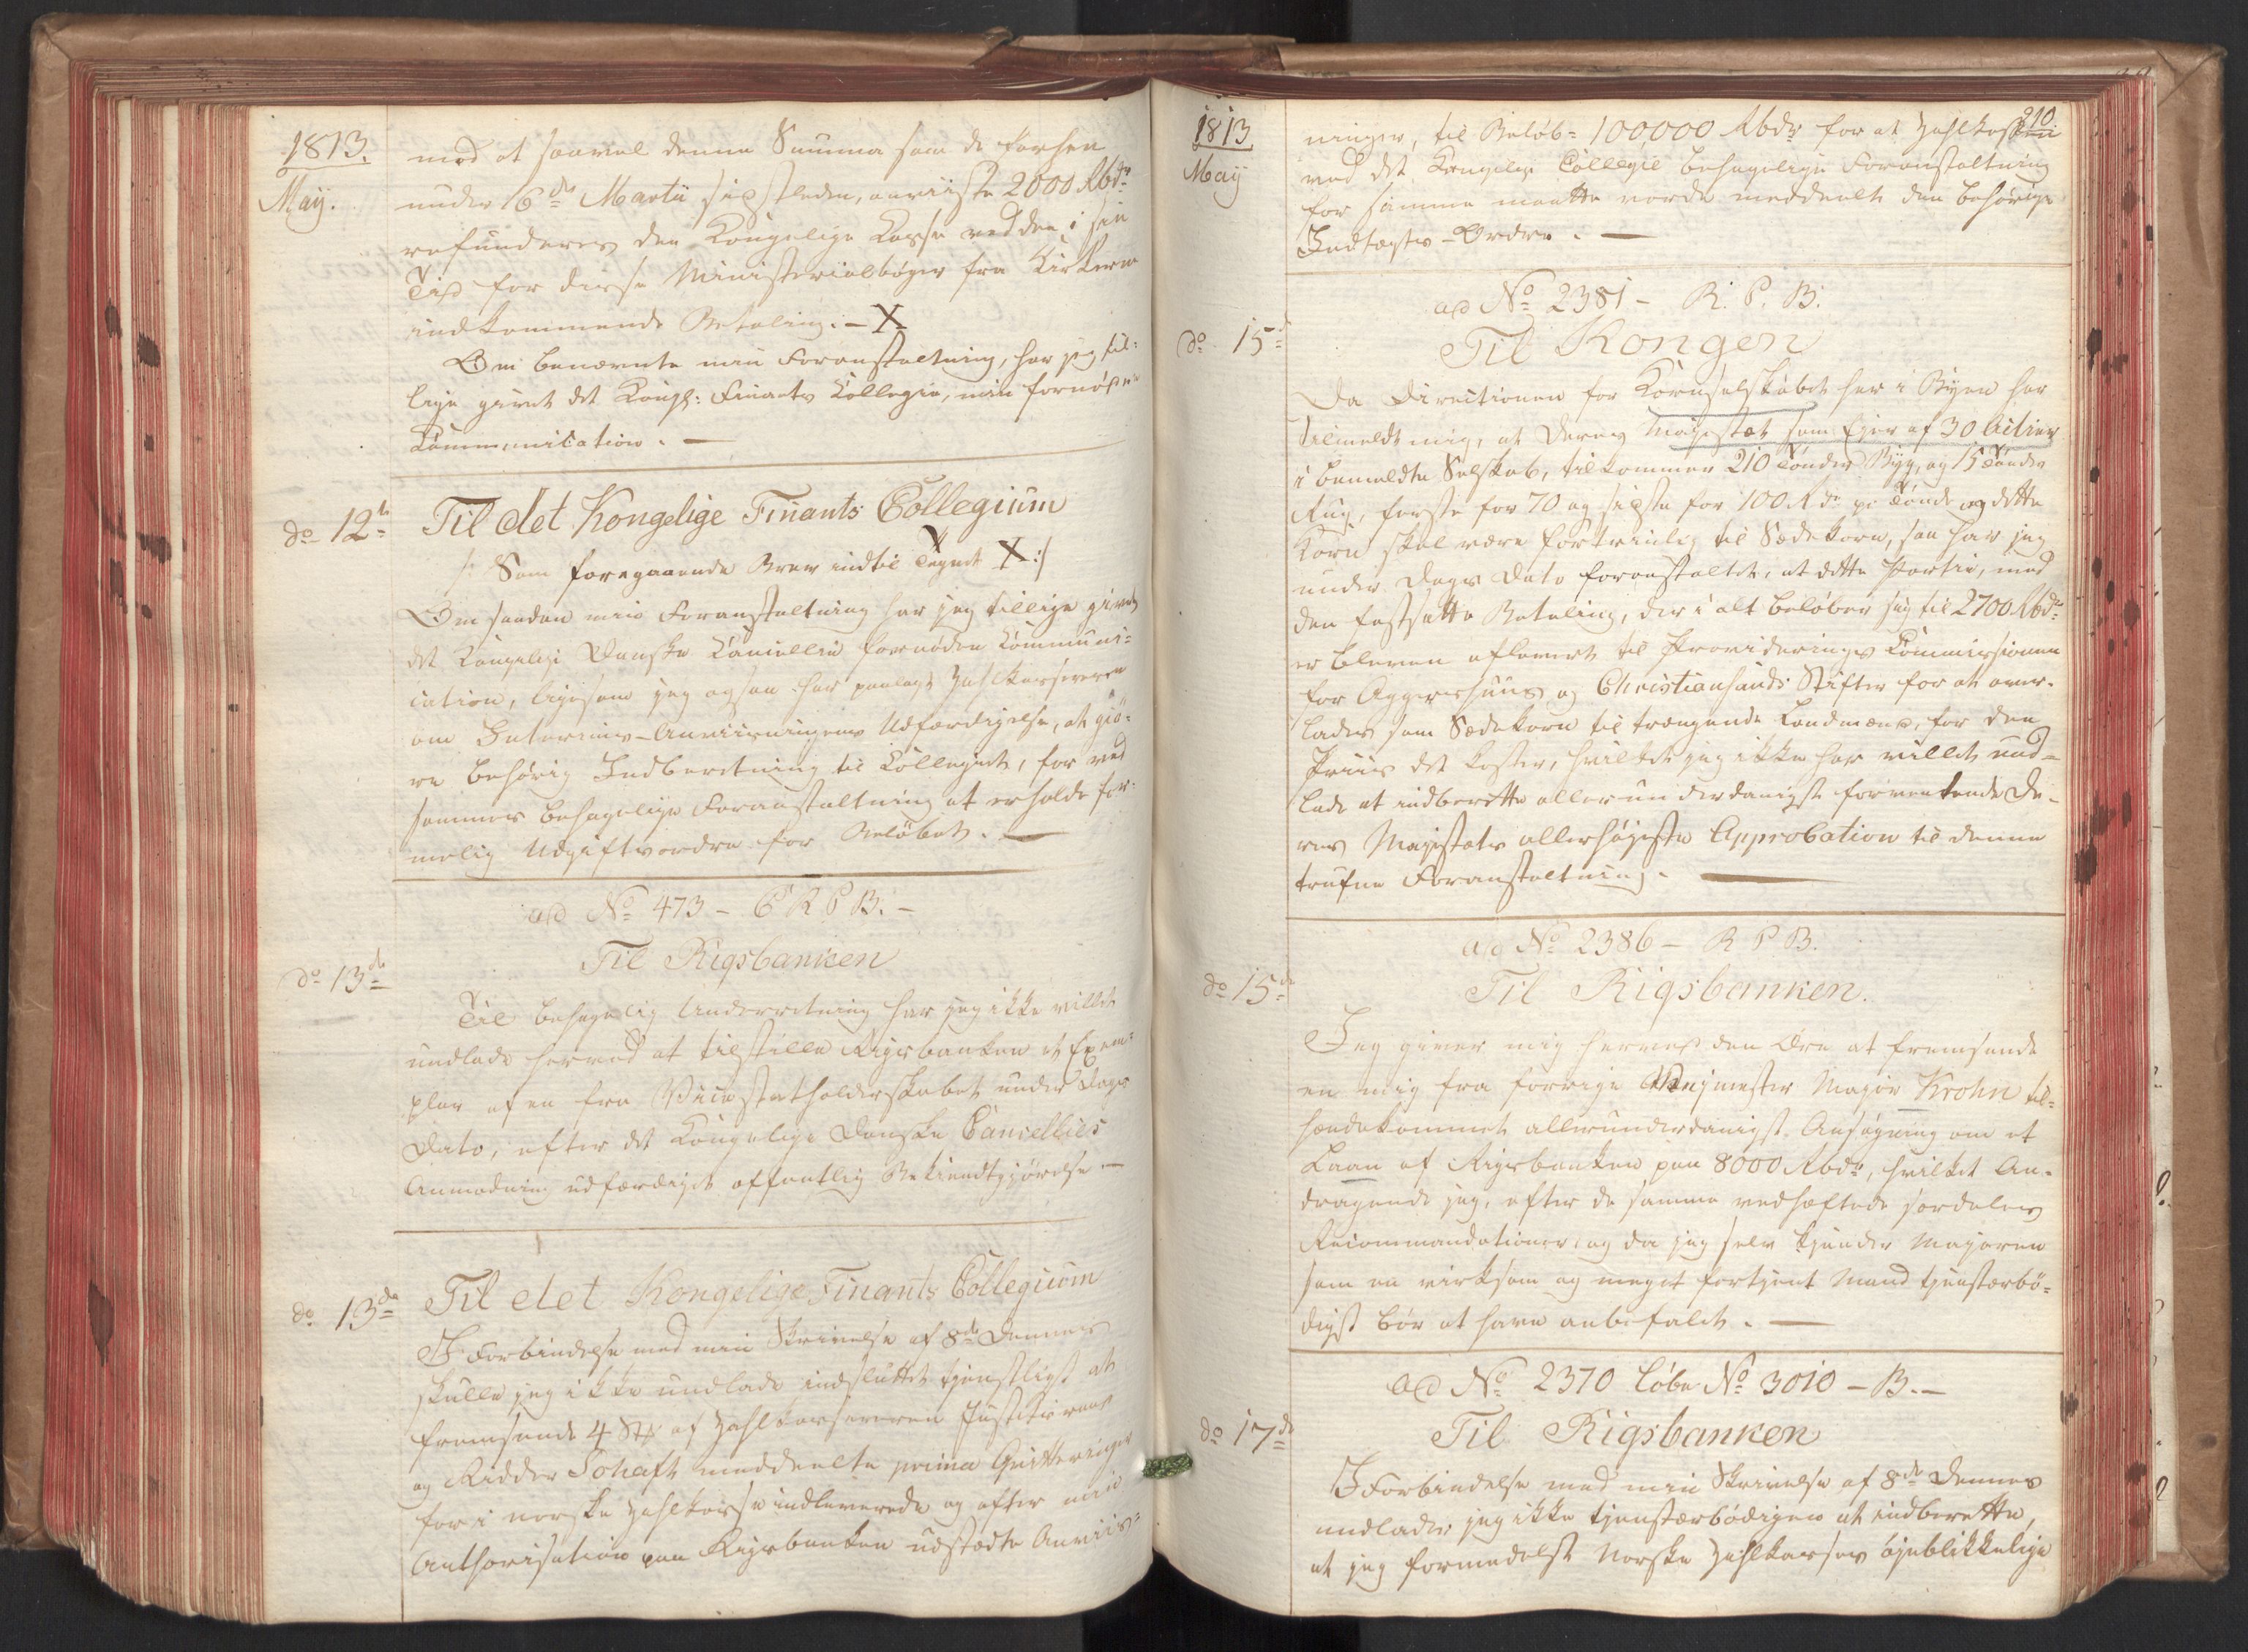 1813.
May.
mod at saavel denne Summa som de forhen
under 16de Martii sidstleden, anviiste 2000 Rbdr
refunderes den Kongelige Casse ved den i sin
Tid for disse Ministerialbøger fra Kirkerne
indkommende Betaling. - X
Om benævnte min Foranstaltning, har jeg til-
lige givet det Kongl: Finants Collegie, min fornøden
Communication. -
do 12te
Til det Kongelige Finants Collegium
/: Som foregaaende Brev indtil Tegnet X :/
Om saadan min Foranstaltning har jeg tillige givet
det Kongelige Danske Cancellie fornøden Communi-
cation, ligesom jeg ogsaa har paalagt Zahlkassereren
om Interims-Anviisningens Udfærdigelse, at giö-
re behörig Indberetning til Collegiet, for ved
sammes behagelige Foranstaltning at erholde for-
melig Udgiftsordre for Belöbet. -
ad No 473 - C R P B. -
do 13de
Til Rigsbanken
Til behagelig Underretning har jeg ikke villet
undlade herved at tilstille Rigsbanken et Exem-
plar af en fra Vicestatholderskabet under Dags
Dato, efter det Kongelige Danske Cancellies
Anmodning udfærdiget offentlig Bekiendtgjørelse -
do 13de
Til det Kongelige Finants Collegium
I Forbindelse med min Skrivelse af 8de Dennes
skulle jeg ikke undlade indsluttet tjenstligst at
fremsende 4 St. af Zahlkassereren Justitsraad
og Ridder Schaft meddeelte prima Qvitteringer
for i norske Zahlkasse indleverede og efter min
Authorisation paa Rigsbanken udstædte Anviis-
210
1813
May
ninger, til Beløb = 100000 Rbdr for at Zahlkassen
ved det Kongelige Collegie behagelige Foranstaltning
for samme maatte vorde meddeelt den behörige
Indtægts-Ordre. -
ad No 2381 - R. P. B.
do 15de
Til Kongen
Da Directionen for Kornselskabet her i Byen har
tilmeldt mig, at Deres Majestæt som Ejer af 30 Actier
i bemeldte Selskab, tilkommer 210 Tønder Byg, og 15 Tønder
Rug, første for 70 og sidste for 100 Rdr pr Tønde og dette
Korn skal være fortrinlig til Sædekorn, saa har jeg
under Dags Dato foranstaltet, at dette Partie, mod
den fastsatte Betaling, der i alt beløber sig til 2700 Rbdr
er bleven afleveret til Provideringscommissionen
for Aggershuus og Christiansands Stifter for at over-
lades som Sædekorn til trængende Landmænd, for den
Priis det koster, hvilket jeg ikke har villet und-
lade at indberette allerunderdanigst forventende De-
res Majestæts allerhøjeste Approbation til denne
trufne Foranstaltning. -
ad No 2386 - R P B.
do 15de
Til Rigsbanken.
Jeg giver mig herved den Ære at fremsende
en mig fra forrige Vejmester Major Krohn til-
hændekommet allerunderdanigst Ansøgning om et
Laan af Rigsbanken paa 8000 Rbdr, hvilket An-
dragende jeg, efter de samme vedhæftede fordeles
Recommandationer, og da jeg selv kjender Majoren
som en virksom og meget fortjent Mand tjenstærbö-
digst bør at have anbefalet. -
ad No 2370 Løbe No 3010 - B. -
do 17de
Til Rigsbanken
I Forbindelse med min Skrivelse af 8de Dennes
undlader jeg ikke tjenstærbødigen at indberette,
at jeg formedelst Norske Zahlkasses öjeblikkelige